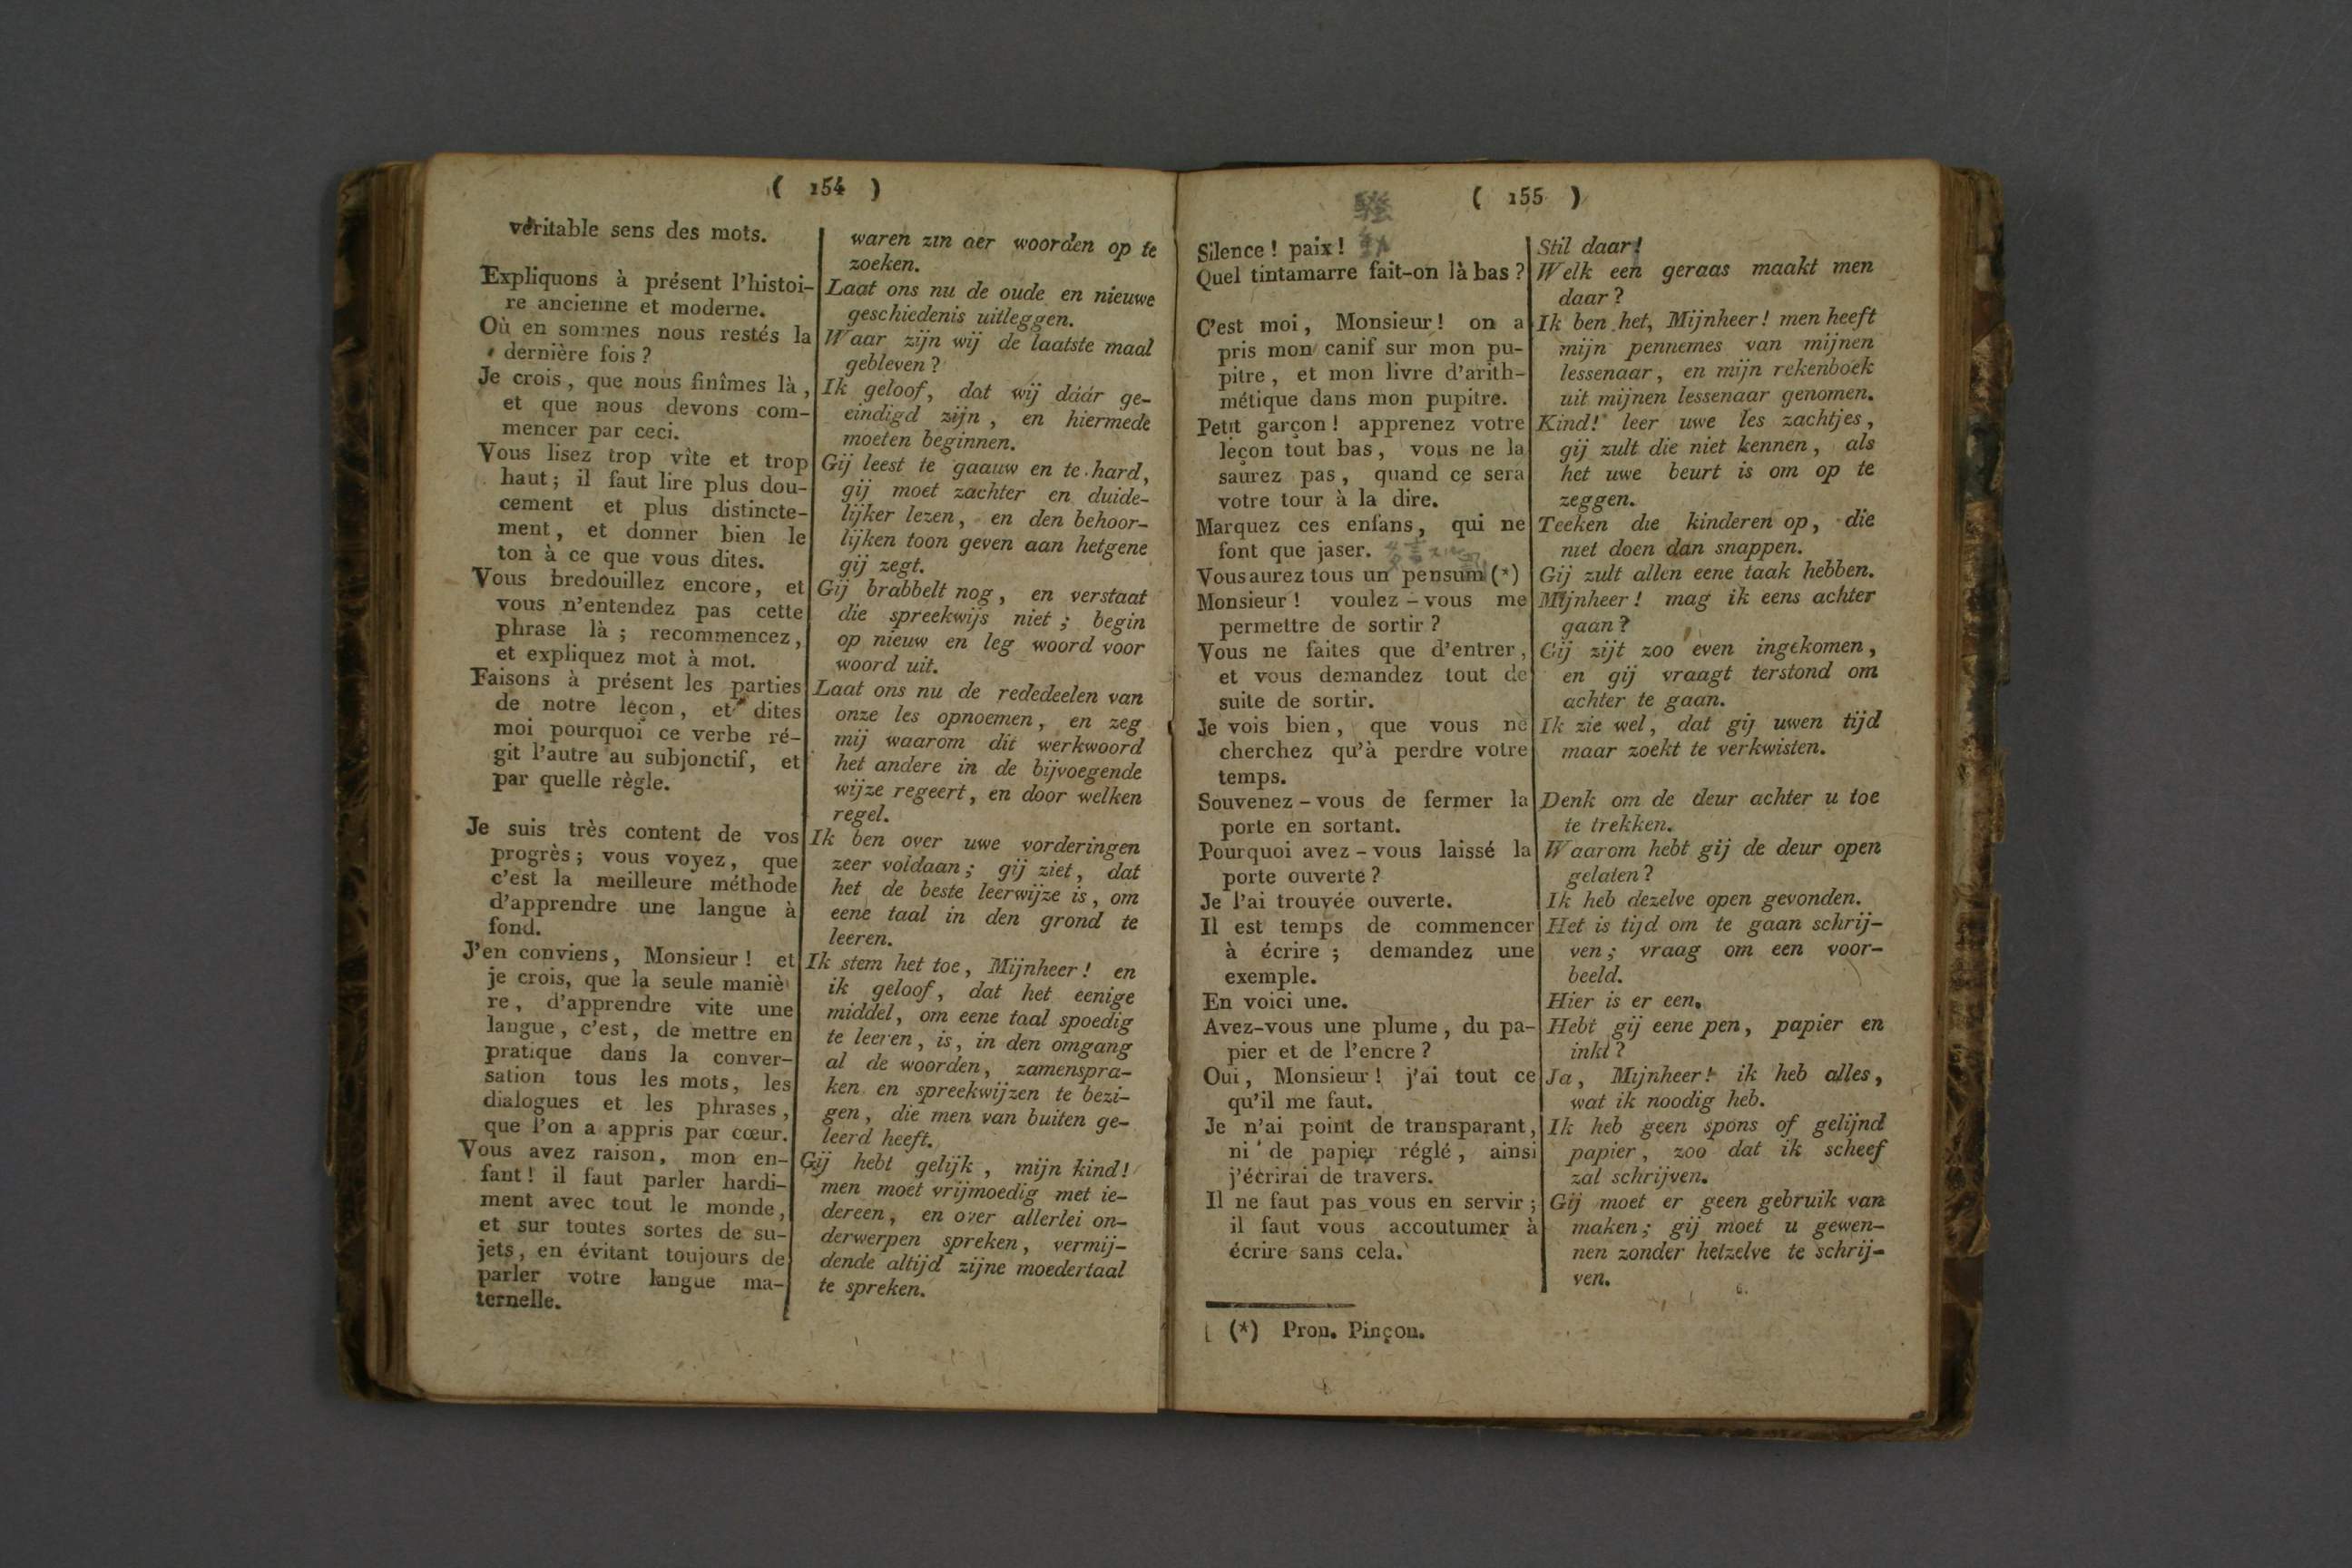 ( 154 )
véritable sens des mots.
Expliquons à présent l'histoi-
re ancienne et moderne.
Où en sommes nous restés la
dernière fois ?
Je crois, que nous finîmes là,
et que nous devons com-
mencer par ceci.
Vous lisez trop vîte et trop
haut ; il faut lire plus dou-
cement et plus distincte-
ment, et donner bien le
ton à ce que vous dites.
Vous bredouillez encore, et
vous n'entendez pas cette
phrase là ; recommencez,
et expliquez mot à mot.
Faisons à présent les parties
de notre leçon, et dites
moi pourquoi ce verbe ré-
git l'autre au subjonctif, et
par quelle règle.
Je suis très content de vos
progrès ; vous voyez, que
c'est la meilleure méthode
d'apprendre une langue à
fond.
J'en conviens, Monsieur ! et
je crois, que la seule maniè
re, d'apprendre vite une
langue, c'est, de mettre en
pratique dans la conver-
sation tous les mots, les
dialogues et les phrases,
que l'on a appris par cœur.
Vous avez raison, mon en-
fant ! il faut parler hardi-
ment avec tout le monde,
et sur toutes sortes de su-
jets, en évitant toujours de
parler votre langue ma-
ternelle.
waren zin der woorden op te
zoeken.
Laat ons nu de oude en nieuwe
geschiedenis uitleggen.
Waar zijn wij de laatste maal
gebleven ?
Ik geloof, dat wij dáár ge-
eindigd zijn, en hiermede
moeten beginnen.
Gij leest te gaauw en te hard,
gij moet zachter en duide-
lijker lezen, en den behoor-
lijken toon geven aan hetgene
gij zegt.
Gij brabbelt nog, en verstaat
die spreekwijs niet ; begin
op nieuw en leg woord voor
woord uit.
Laat ons nu de rededeelen van
onze les opnoemen, en zeg
mij waarom dit werkwoord
het andere in de bijvoegende
wijze regeert, en door welken
regel.
Ik ben over uwe vorderingen
zeer voldaan ; gij ziet, dat
het de beste leerwijze is, om
eene taal in den grond te
leeren.
Ik stem het toe, Mijnheer ! en
ik geloof, dat het eenige
middel, om eene taal spoedig
te leeren, is, in den omgang
al de woorden, zamenspra-
ken en spreekwijzen te bezi-
gen, die men van buiten ge-
leerd heeft.
Gij hebt gelijk, mijn kind !
men moet vrijmoedig met ie-
dereen, en over allerlei on-
derwerpen spreken, vermij-
dende altijd zijne moedertaal
te spreken.
( 155 )
Silence ! paix !
Quel tintamarre fait-on là bas ?
C'est moi, Monsieur ! on a
pris mon canif sur mon pu-
pitre, et mon livre d'arith-
métique dans mon pupitre.
Petit garçon ! apprenez votre
leçon tout bas, vous ne la
saurez pas, quand ce sera
votre tour à la dire.
Marquez ces enfans, qui ne
font que jaser.
Vous aurez tous un pensum (*)
Monsieur ! voulez-vous me
permettre de sortir ?
Vous ne faites que d'entrer,
et vous demandez tout de
suite de sortir.
Je vois bien, que vous ne
cherchez qu'à perdre votre
temps.
Souvenez-vous de fermer la
porte en sortant.
Pourquoi avez-vous laissé la
porte ouverte ?
Je l'ai trouvée ouverte.
Il est temps de commencer
à écrire ; demandez une
exemple.
En voici une.
Avez-vous une plume, du pa-
pier et de l'encre ?
Oui, Monsieur ! j'ai tout ce
qu'il me faut.
Je n'ai point de transparant,
ni de papier réglé, ainsi
j'écrirai de travers.
Il ne faut pas vous en servir ;
il faut vous accoutumer à
écrire sans cela.
Stil daar !
Welk een geraas maakt men
daar ?
Ik ben het, Mijnheer ! men heeft
mijn pennemes van mijnen
lessenaar, en mijn rekenboek
uit mijnen lessenaar genomen.
Kind ! leer uwe les zachtjes,
gij zult die niet kennen, als
het uwe beurt is om op te
zeggen.
Teeken die kinderen op, die
niet doen dan snappen.
Gij zult allen eene taak hebben.
Mijnheer ! mag ik eens achter
gaan ?
Gij zijt zoo even ingekomen,
en gij vraagt terstond om
achter te gaan.
Ik zie wel, dat gij uwen tijd
maar zoekt te verkwisten.
Denk om de deur achter u toe
te trekken.
Waarom hebt gij de deur open
gelaten ?
Ik heb dezelve open gevonden.
Het is tijd om te gaan schrij-
ven ; vraag om een voor-
beeld.
Hier is er een.
Hebt gij eene pen, papier en
inkt ?
Ja, Mijnheer ! ik heb alles,
wat ik noodig heb.
Ik heb geen spons of gelijnd
papier, zoo dat ik scheef
zal schrijven.
Gij moet er geen gebruik van
maken ; gij moet u gewen-
nen zonder hetzelve te schrij-
ven.
(*) Pron. Pinçon.